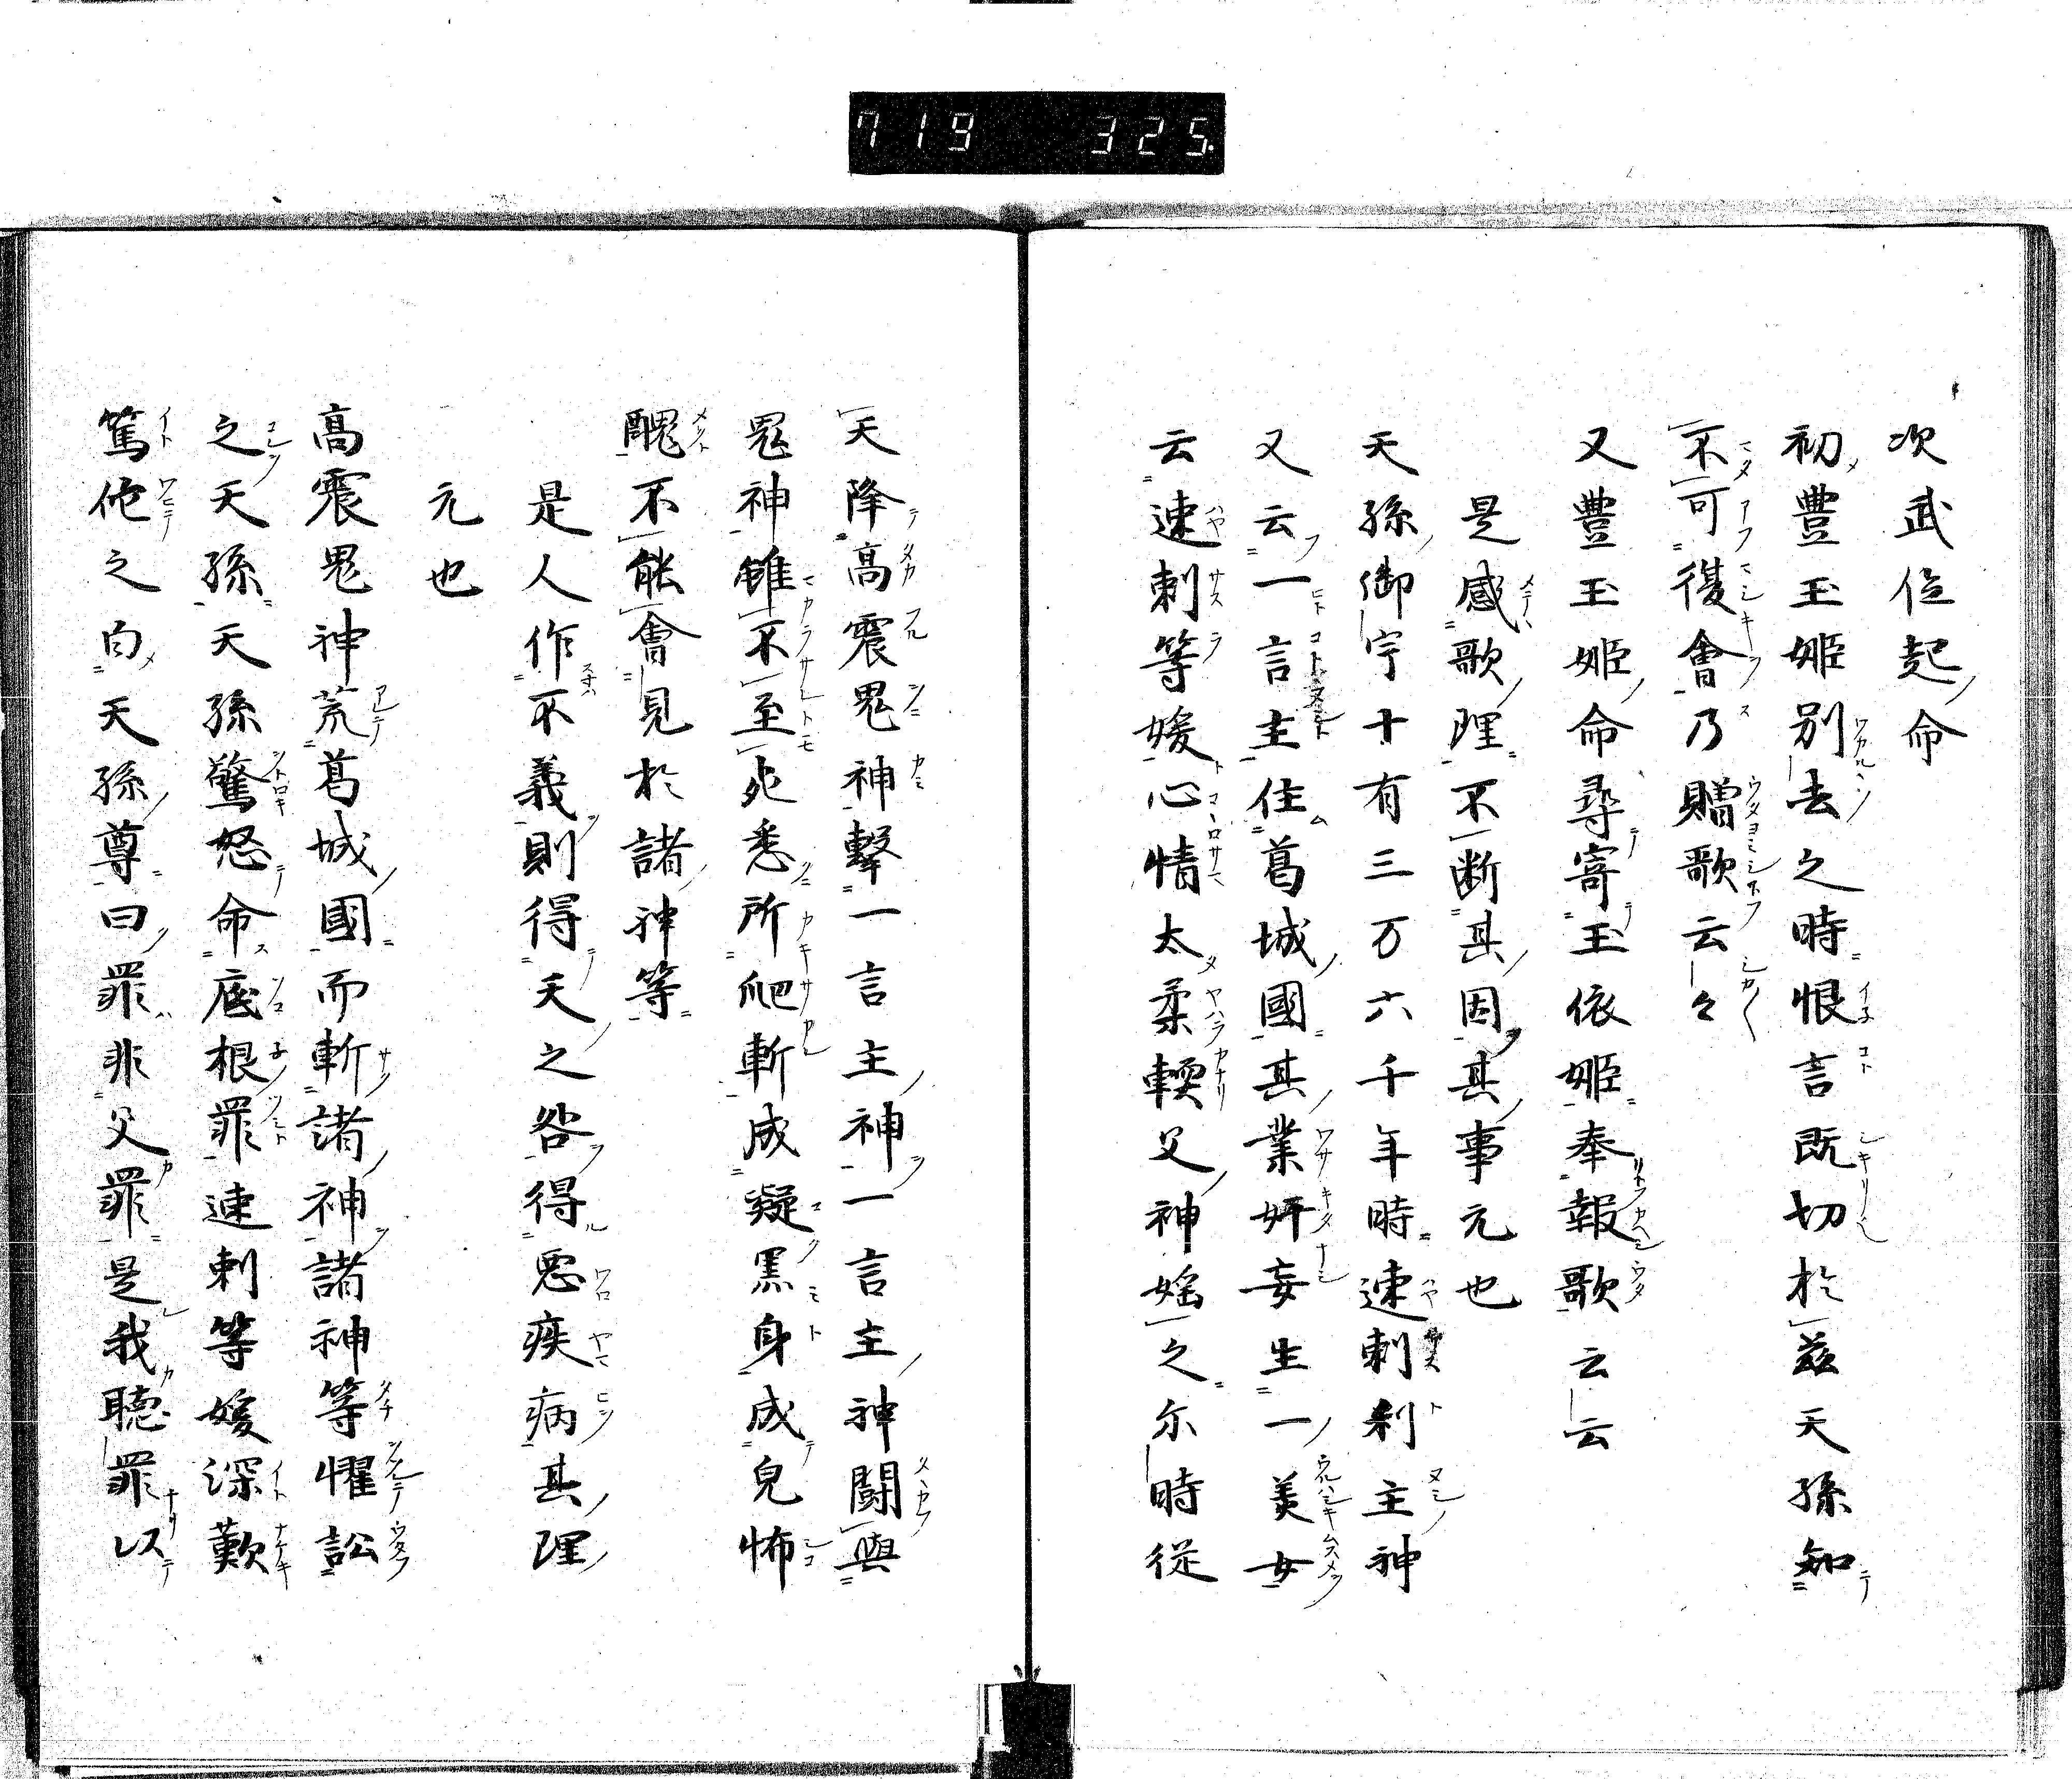 719 325
次武位起命
初豊玉姫別去之時恨言既切於茲天孫知
不可復會乃贈歌云々
又豊玉姫命尋寄玉依姫奉報歌云云
是感歌理不断其因其事元也
天孫御宇十有三万六千年時速刺刹主神
又云一言主住葛城國其業奸妄生一美女
云速刺等媛心情太柔輭父神婬之尓時従
天降高震鬼神擊一言主神一言主神闘與
鬼神雖不至死悉所爬斬成凝黒身成皃怖
醜不能會見於諸神等
是人作不義則得天之咎得悪疾病其理
元也
高震鬼神荒葛城國而斬諸神諸神等懼訟
之天孫天孫驚怒命底根罪速刺等媛深歎
篤侘之白天孫尊曰罪非父罪是我聴罪以